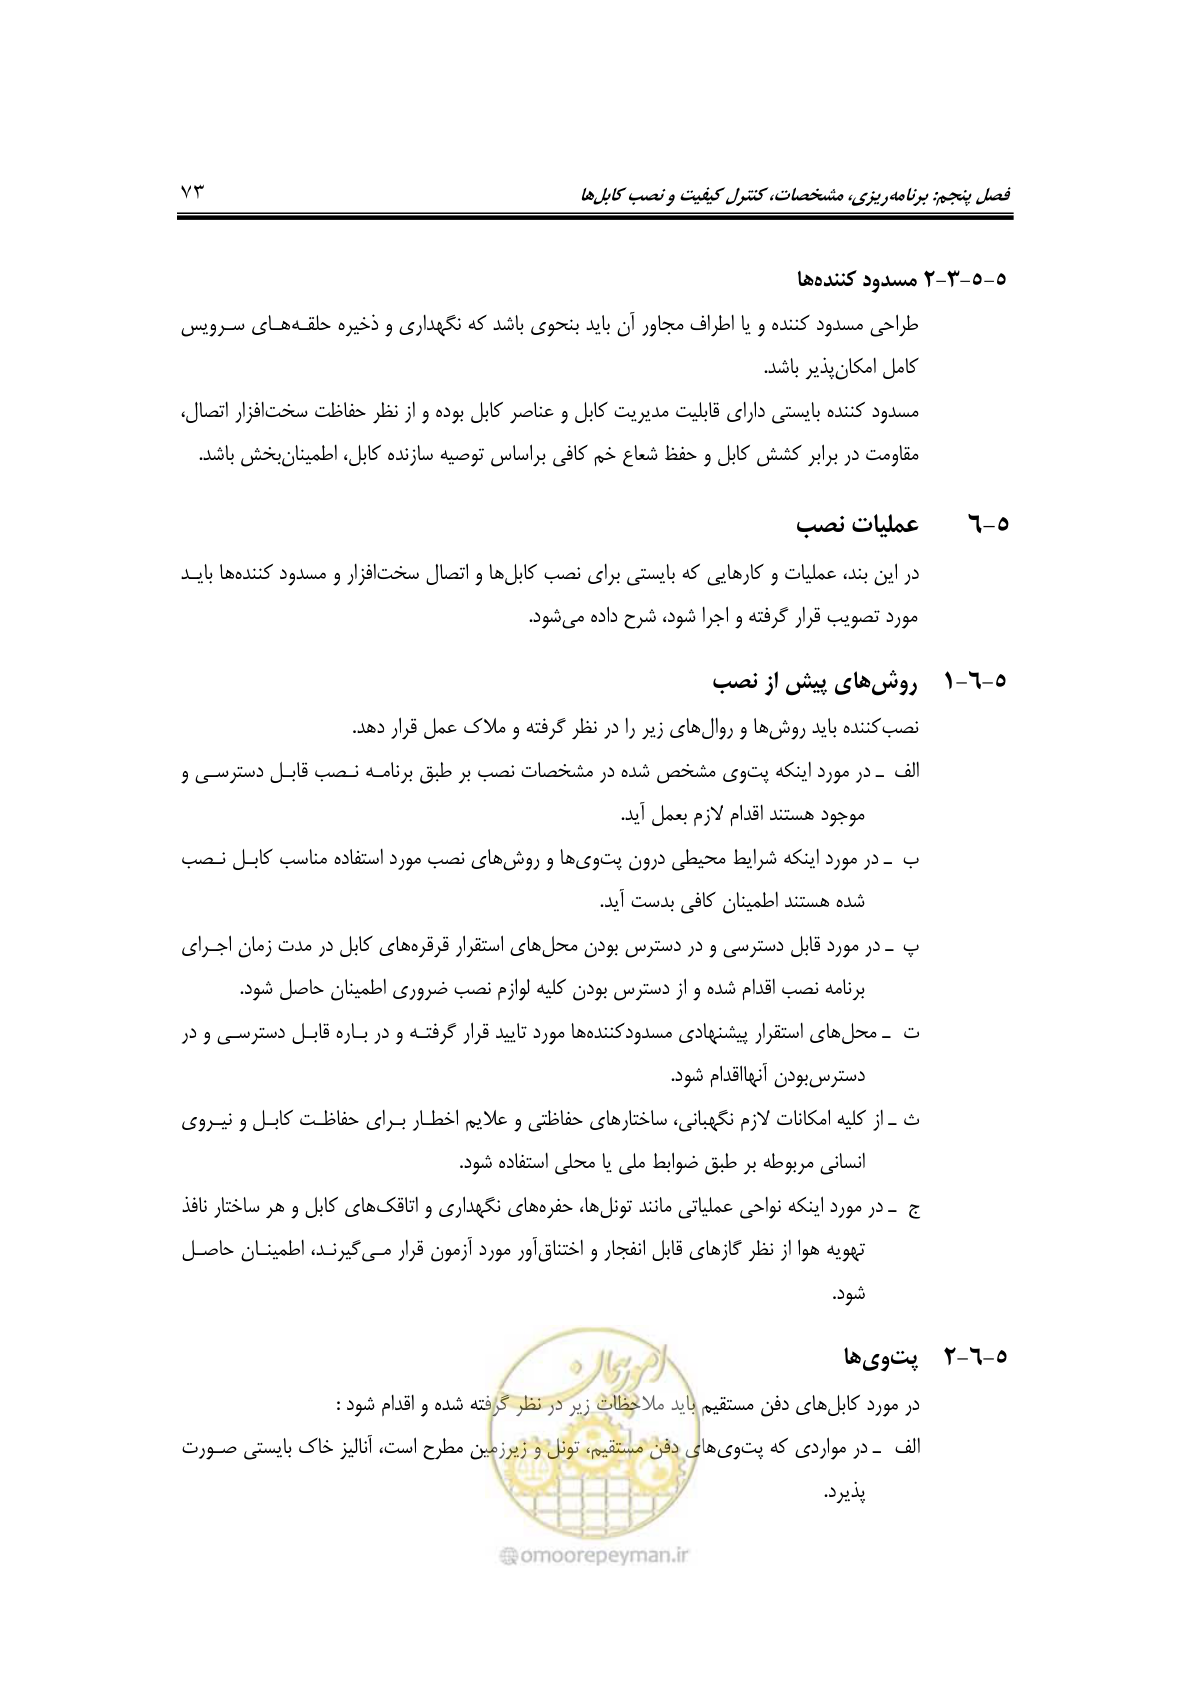 فصل پنجم: برنامه‌ریزی، مشخصات، کنترل کیفیت و نصب کابل‌ها ۷۳
۵-۵-۳-۲ مسدود کننده‌ها
طراحی مسدود کننده و یا اطراف مجاور آن باید بنحوی باشد که نگهداری و ذخیره حلقـه‌هـای سـرویس
کامل امکان‌پذیر باشد.
مسدود کننده بایستی دارای قابلیت مدیریت کابل و عناصر کابل بوده و از نظر حفاظت سخت‌افزار اتصال،
مقاومت در برابر کشش کابل و حفظ شعاع خم کافی براساس توصیه سازنده کابل، اطمینان‌بخش باشد.
۵-۶ عملیات نصب
در این بند، عملیات و کارهایی که بایستی برای نصب کابل‌ها و اتصال سخت‌افزار و مسدود کننده‌ها بایـد
مورد تصویب قرار گرفته و اجرا شود، شرح داده می‌شود.
۵-۶-۱ روش‌های پیش از نصب
نصب‌کننده باید روش‌ها و روال‌های زیر را در نظر گرفته و ملاک عمل قرار دهد.
الف ـ در مورد اینکه پت‌وی مشخص شده در مشخصات نصب بر طبق برنامـه نـصب قابـل دسترسـی و
موجود هستند اقدام لازم بعمل آید.
ب ـ در مورد اینکه شرایط محیطی درون پت‌وی‌ها و روش‌های نصب مورد استفاده مناسب کابـل نـصب
شده هستند اطمینان کافی بدست آید.
پ ـ در مورد قابل دسترسی و در دسترس بودن محل‌های استقرار قرقره‌های کابل در مدت زمان اجـرای
برنامه نصب اقدام شده و از دسترس بودن کلیه لوازم نصب ضروری اطمینان حاصل شود.
ت ـ محل‌های استقرار پیشنهادی مسدودکننده‌ها مورد تایید قرار گرفتـه و در بـاره قابـل دسترسـی و در
دسترس‌بودن آنهااقدام شود.
ث ـ از کلیه امکانات لازم نگهبانی، ساختارهای حفاظتی و علایم اخطـار بـرای حفاظـت کابـل و نیـروی
انسانی مربوطه بر طبق ضوابط ملی یا محلی استفاده شود.
ج ـ در مورد اینکه نواحی عملیاتی مانند تونل‌ها، حفره‌های نگهداری و اتاقک‌های کابل و هر ساختار نافذ
تهویه هوا از نظر گازهای قابل انفجار و اختناق‌آور مورد آزمون قرار مـی‌گیرنـد، اطمینـان حاصـل
شود.
۵-۶-۲ پت‌وی‌ها
در مورد کابل‌های دفن مستقیم باید ملاحظات زیر در نظر گرفته شده و اقدام شود :
الف ـ در مواردی که پت‌وی‌های دفن مستقیم، تونل و زیرزمین مطرح است، آنالیز خاک بایستی صـورت
پذیرد.
امور پیمان
@omoorepeyman.ir